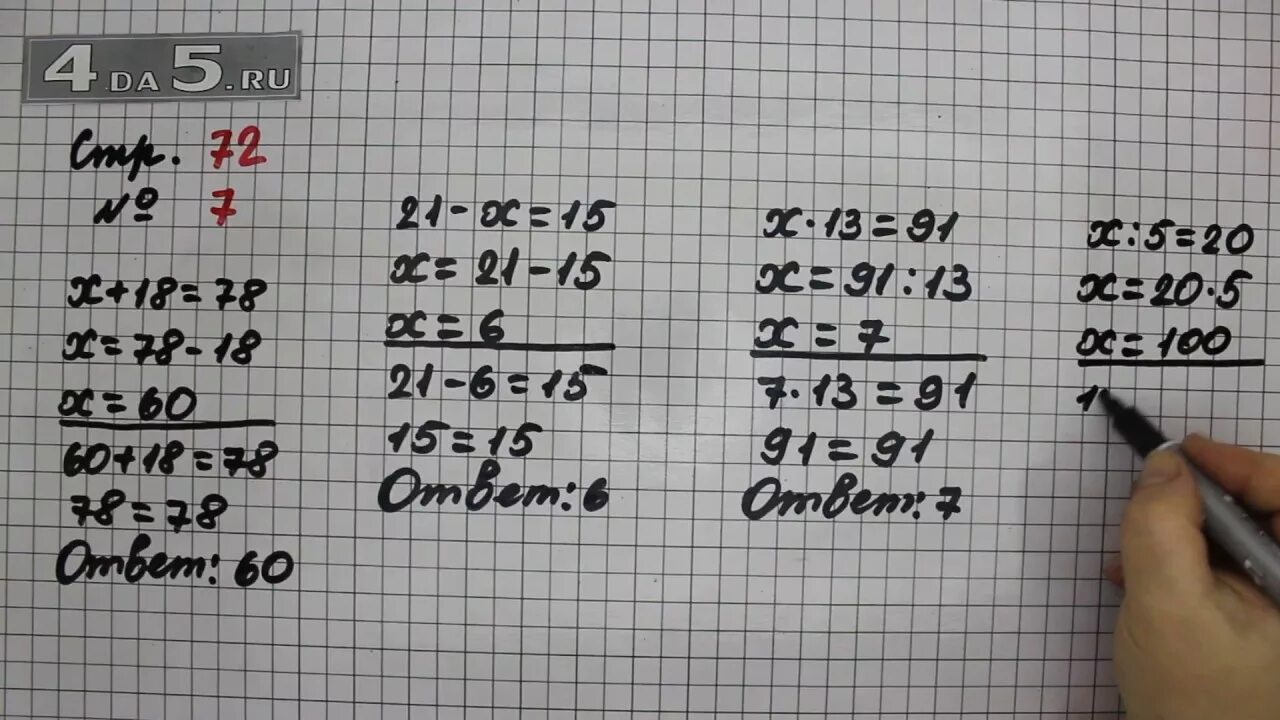 4DA5.RU
Стр. 72
№ 7
х+18=78
х=78-18
х=60
60+18=78
78=78
Ответ: 60
21-х=15
х=21-15
х=6
21-6=15
15=15
Ответ: 6
х·13=91
х=91:13
х=7
7·13=91
91=91
Ответ: 7
х:5=20
х=20·5
х=100
1